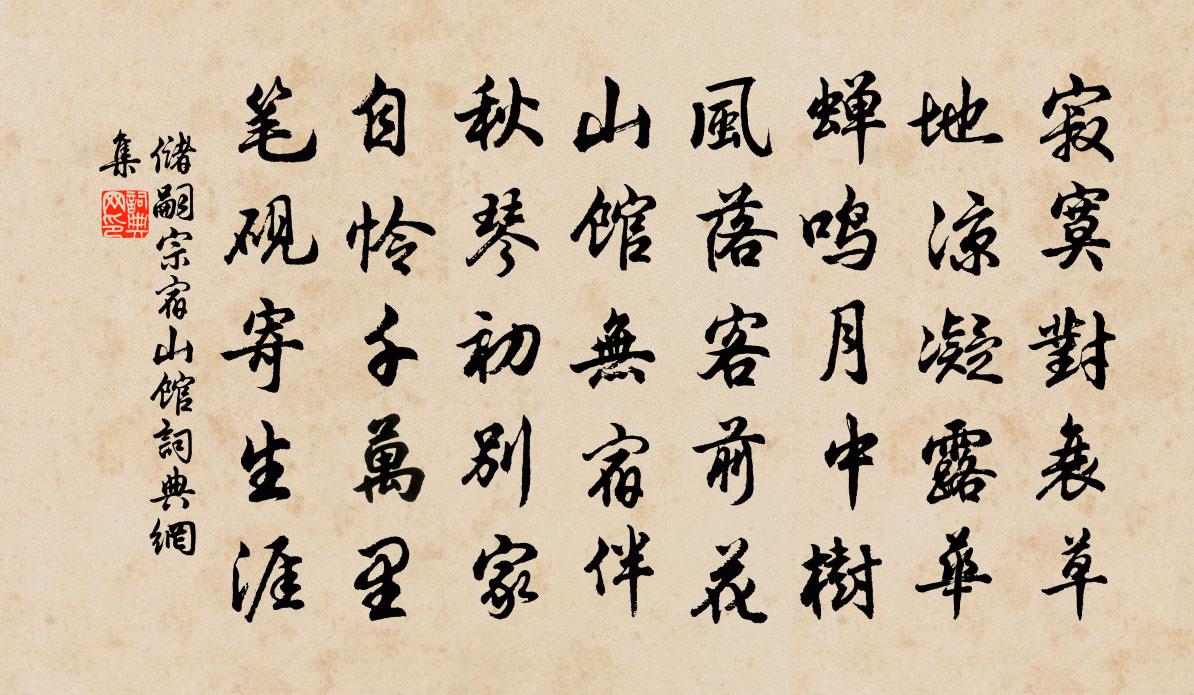 寂寞對衰草
地涼凝露華
蝉鸣月中樹
風落客前花
山馆無宿伴
秋琴初别家
自怜千萬里
笔砚寄生涯
儲嗣宗宿山馆詞典網
集
詞典
网印